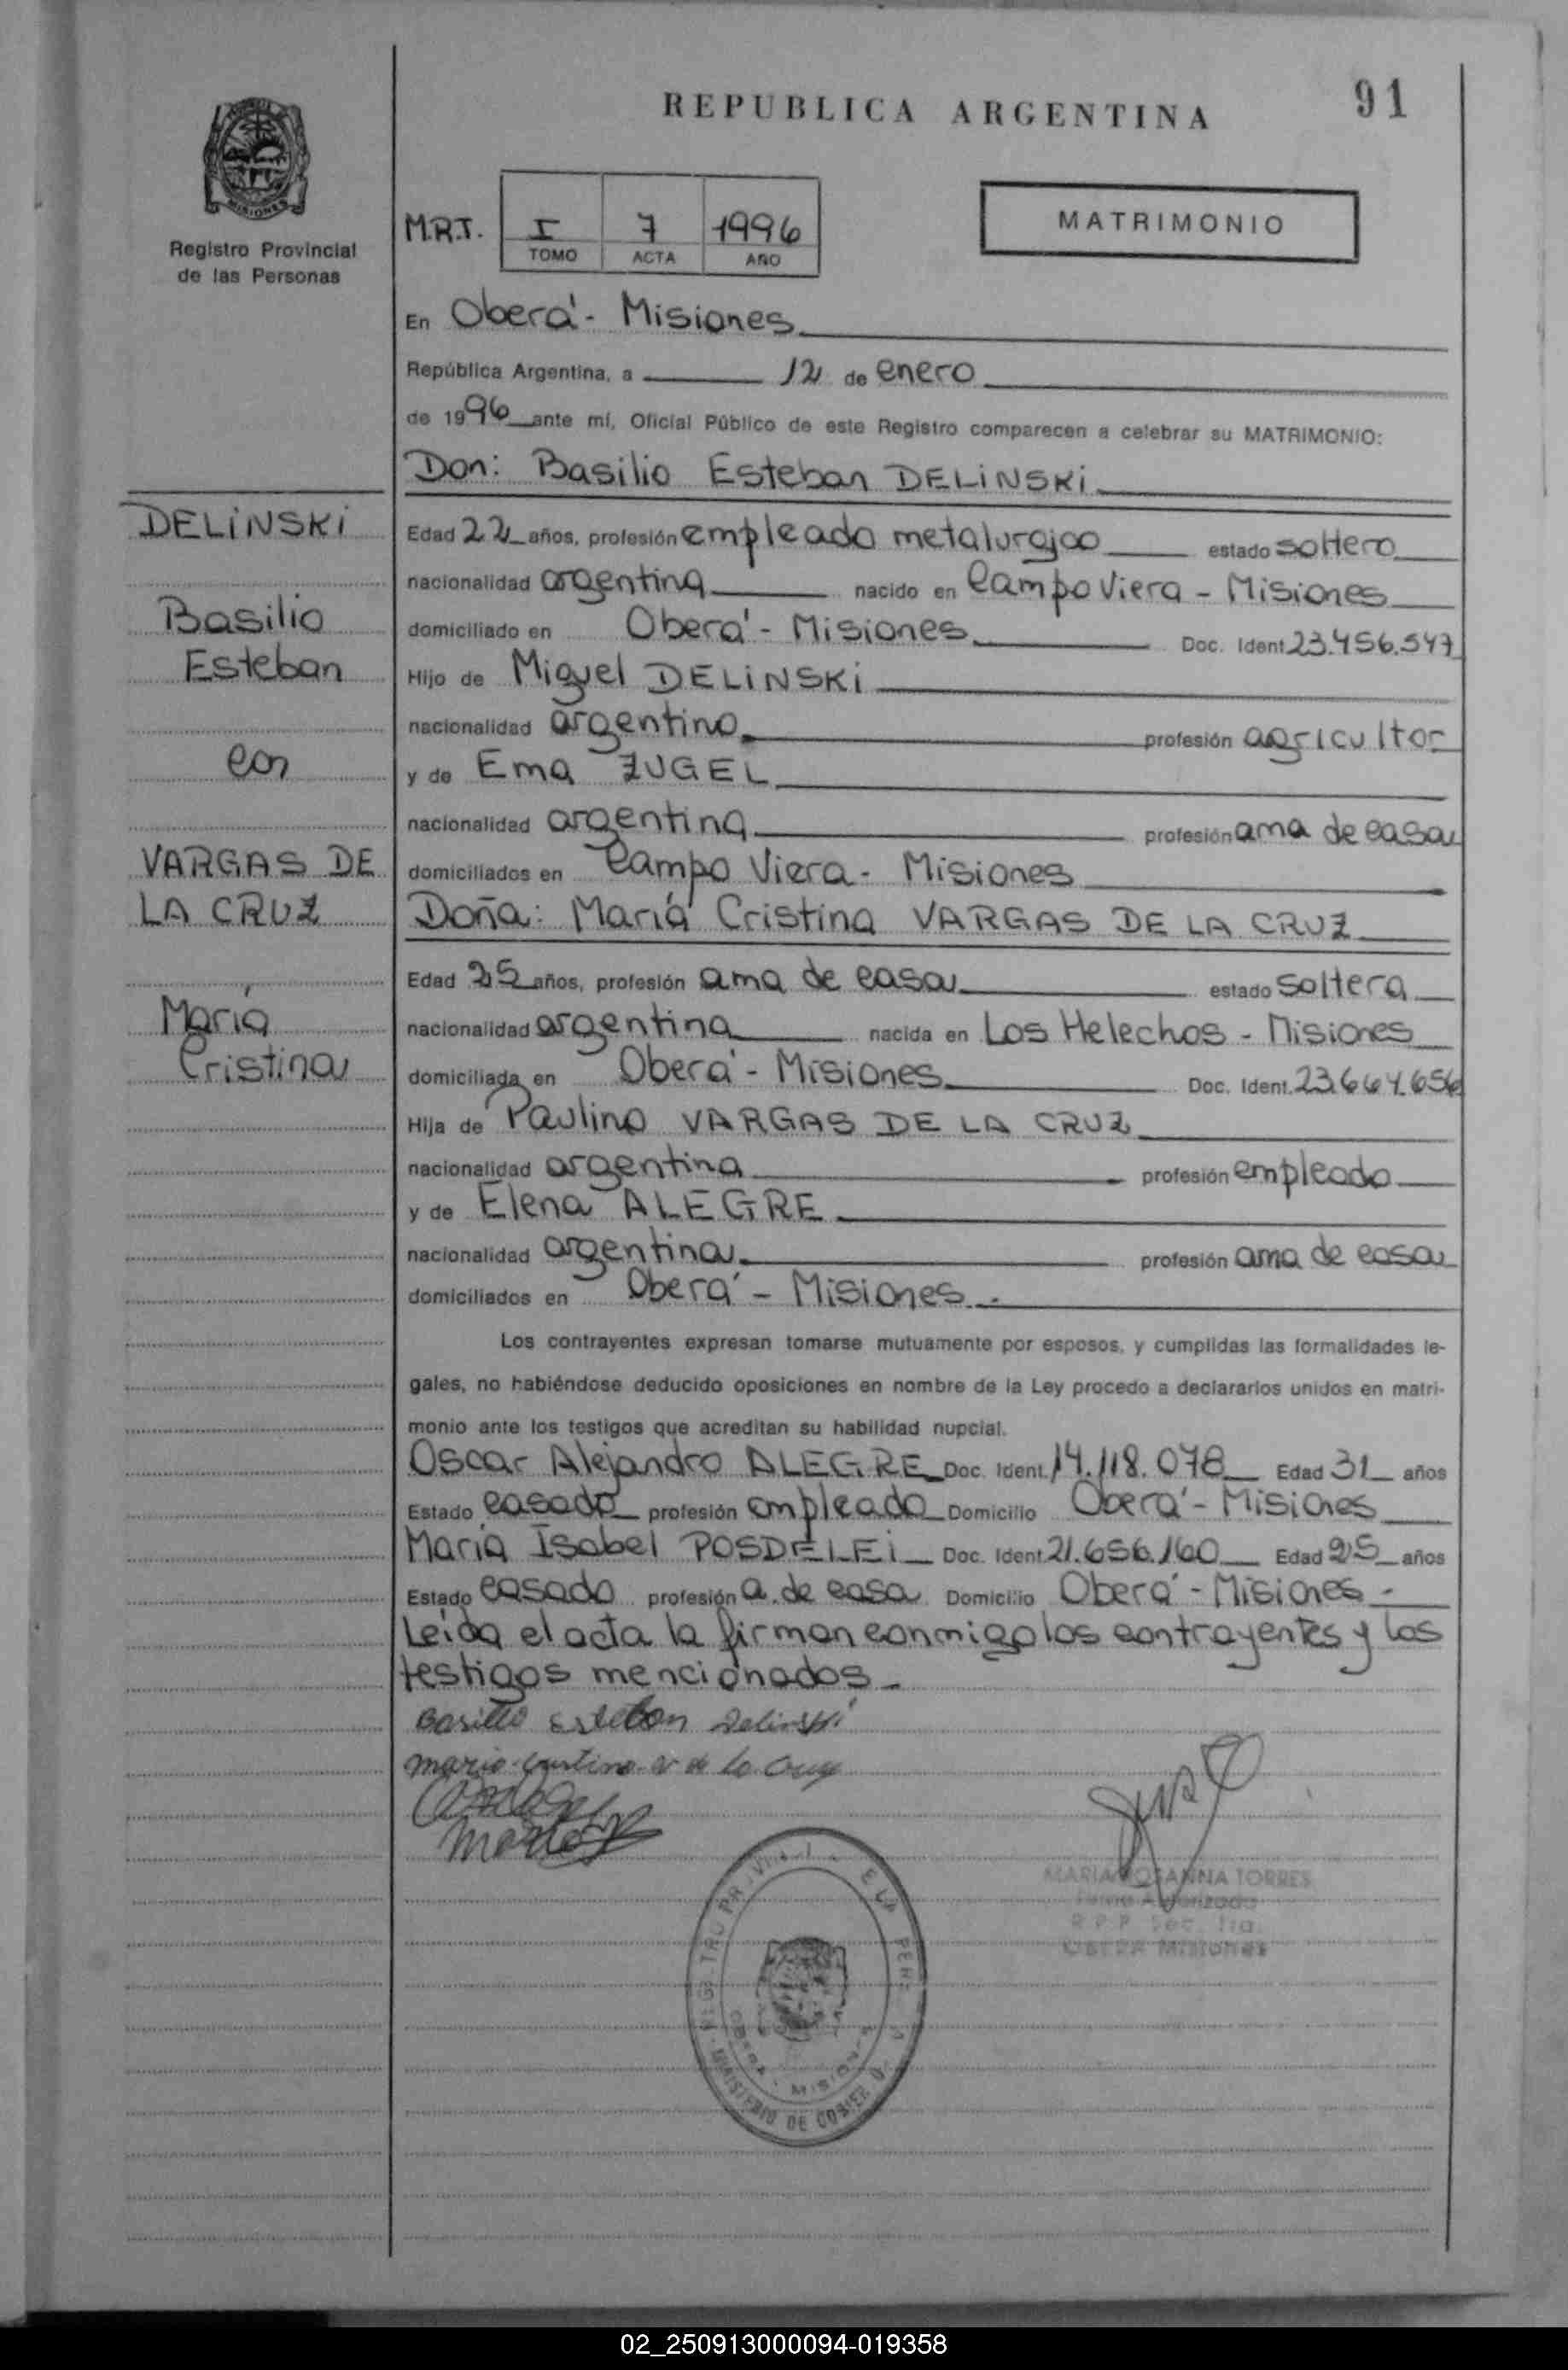 REPUBLICA ARGENTINA
91
MISIONES
Registro Provincial
de las Personas
M.R.T.
I 7 1996
TOMO ACTA AÑO
MATRIMONIO
En Oberá - Misiones
República Argentina, a 12 de enero
de 1996 ante mí, Oficial Público de este Registro comparecen a celebrar su MATRIMONIO:
Don: Basilio Esteban DELINSKI
DELINSKI
Basilio
Esteban
con
VARGAS DE
LA CRUZ
María
Cristina
Edad 22 años, profesión empleado metalurgico estado soltero
nacionalidad argentina nacido en Campo Viera - Misiones
domiciliado en Oberá - Misiones Doc. Ident. 23.456.547
Hijo de Miguel DELINSKI
nacionalidad argentino profesión agricultor
y de Ema ZUGEL
nacionalidad argentina profesión ama de casa
domiciliados en Campo Viera - Misiones
Doña: María Cristina VARGAS DE LA CRUZ
Edad 25 años, profesión ama de casa estado soltera
nacionalidad argentina nacida en Los Helechos - Misiones
domiciliada en Oberá - Misiones Doc. Ident. 23.664.656
Hija de Paulino VARGAS DE LA CRUZ
nacionalidad argentina profesión empleado
y de Elena ALEGRE
nacionalidad argentina profesión ama de casa
domiciliados en Oberá - Misiones -
Los contrayentes expresan tomarse mutuamente por esposos, y cumplidas las formalidades le-
gales, no habiéndose deducido oposiciones en nombre de la Ley procedo a declararlos unidos en matri-
monio ante los testigos que acreditan su habilidad nupcial.
Oscar Alejandro ALEGRE Doc. Ident. 14.118.078 Edad 31 años
Estado casado profesión empleado Domicilio Oberá - Misiones
María Isabel POSDELEI Doc. Ident. 21.656.160 Edad 25 años
Estado casado profesión a. de casa Domicilio Oberá - Misiones -
Leída el acta la firman conmigo los contrayentes y los
testigos mencionados -
Basilio Esteban Delinski
Maria Cristina V de la Cruz
MARIA ROSANNA TORRES
Firma Autorizada
OBERA Misiones
OBERA - MISIONES
MINISTERIO DE GOBIERNO
02_250913000094-019358